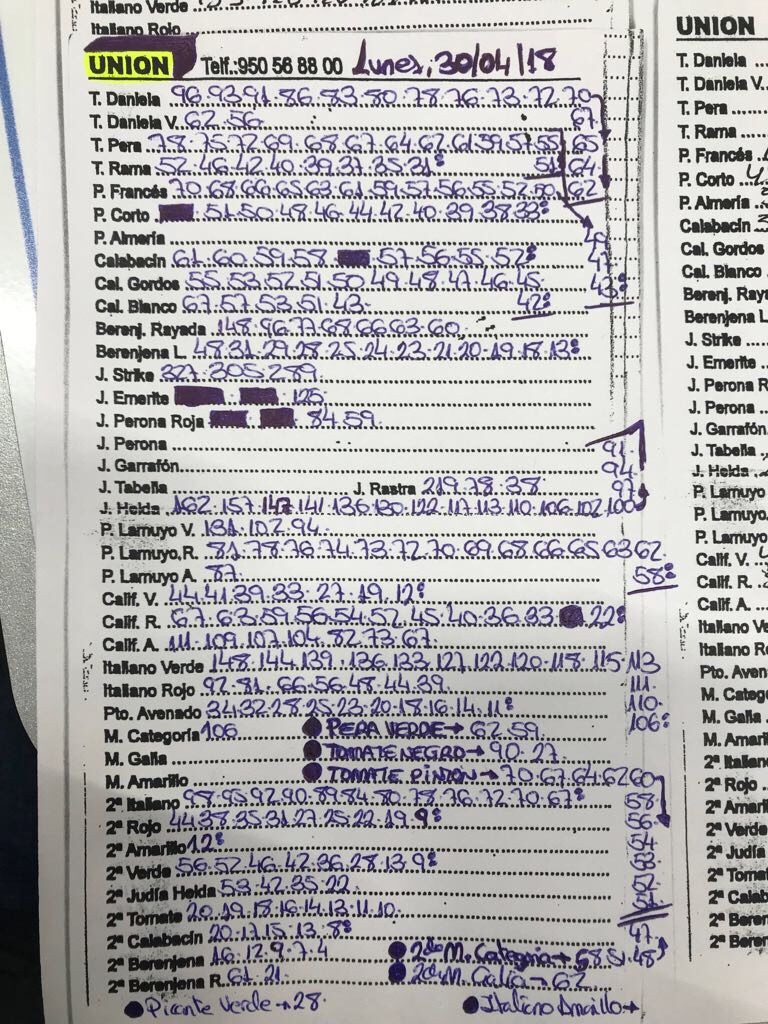 Italiano Verde
Italiano Rojo
UNION Telf.:950 56 88 00 Lunes, 30/04/18
T. Daniela 96.93.91.86.83.80.78.76.73.72.70
T. Daniela V. 62.56. 67
T. Pera 78.75.72.69.68.67.64.62.61.59.57.55 65
T. Rama 52.46.42.40.39.37.35.31: 51 64
P. Francés 70.68.66.65.63.61.59.57.56.55.52.50 62
P. Corto 51.50.48.46.44.42.40.39.38.33:
P. Almería
Calabacín 61.60.59.58. 57.56.55.52: 47
Cal. Gordos 55.53.52.51.50.49.48.47.46.45 43:
Cal. Blanco 67.57.53.51.43. 42:
Berenj. Rayada 148.96.77.68.66.63.60
Berenjena L. 48.31.29.28.25.24.23.21.20.19.18.13:
J. Strike 327.305.289
J. Emerite 125
J. Perona Roja 84.59.
J. Perona 91
J. Garrafón 94
J. Tabella J. Rastra 219.78.38. 97
J. Helda 162.157.147.141.136.130.122.117.113.110.106.102.100
P. Lamuyo V. 131.102.94
P. Lamuyo, R. 81.78.76.74.73.72.70.69.68.66.65.63.62
P. Lamuyo A. 87 58:
Calif. V. 44.41.39.33.27.19.12:
Calif. R. 67.63.59.56.54.52.45.40.36.33. 22:
Calif. A. 111.109.107.104.82.73.67.
Italiano Verde 148.144.139.136.133.127.122.120.118.115.113
Italiano Rojo 92.81.66.56.48.44.39. 111.
Pto. Avenado 34.32.28.25.23.20.18.16.14.11: 110.
M. Categoría 106 PERA VERDE→ 62.59. 106:
M. Galia TOMATE NEGRO→ 90.27.
M. Amarillo TOMATE PINTON→ 70.67.64.62.60
2ª Italiano 98.95.92.90.89.84.80.78.76.72.70.67: 58
2ª Rojo 44.38.35.31.27.25.22.19.9: 56
2ª Amarillo 12: 54
2ª Verde 56.52.46.42.36.28.13.9: 53
2ª Judía Helda 53.42.35.22. 52
2ª Tomate 20.19.18.16.14.13.11.10. 51
2ª Calabacín 20.17.15.13.8: 47
2ª Berenjena 16.12.9.7.4 2da M. Categoria→ 58.51.48
2ª Berenjena R. 61.21. 2da M. Galia→ 62
Picante Verde→28. Italiano Amarillo→
UNION
T. Daniela
T. Daniela V.
T. Pera
T. Rama
P. Francés
P. Corto
P. Almería
Calabacín
Cal. Gordos
Cal. Blanco
Berenj. Raya
Berenjena L.
J. Strike
J. Emerite
J. Perona R
J. Perona
J. Garrafón
J. Tabella
J. Helda
P. Lamuyo
P. Lamuyo,
P. Lamuyo
Calif. V.
Calif. R.
Calif. A.
Italiano Ve
Italiano Ro
Pto. Aven
M. Catego
M. Galia
M. Amari
2ª Italian
2ª Rojo
2ª Amari
2ª Verde
2ª Judía
2ª Tomat
2ª Calab
2ª Beren
2ª Beren